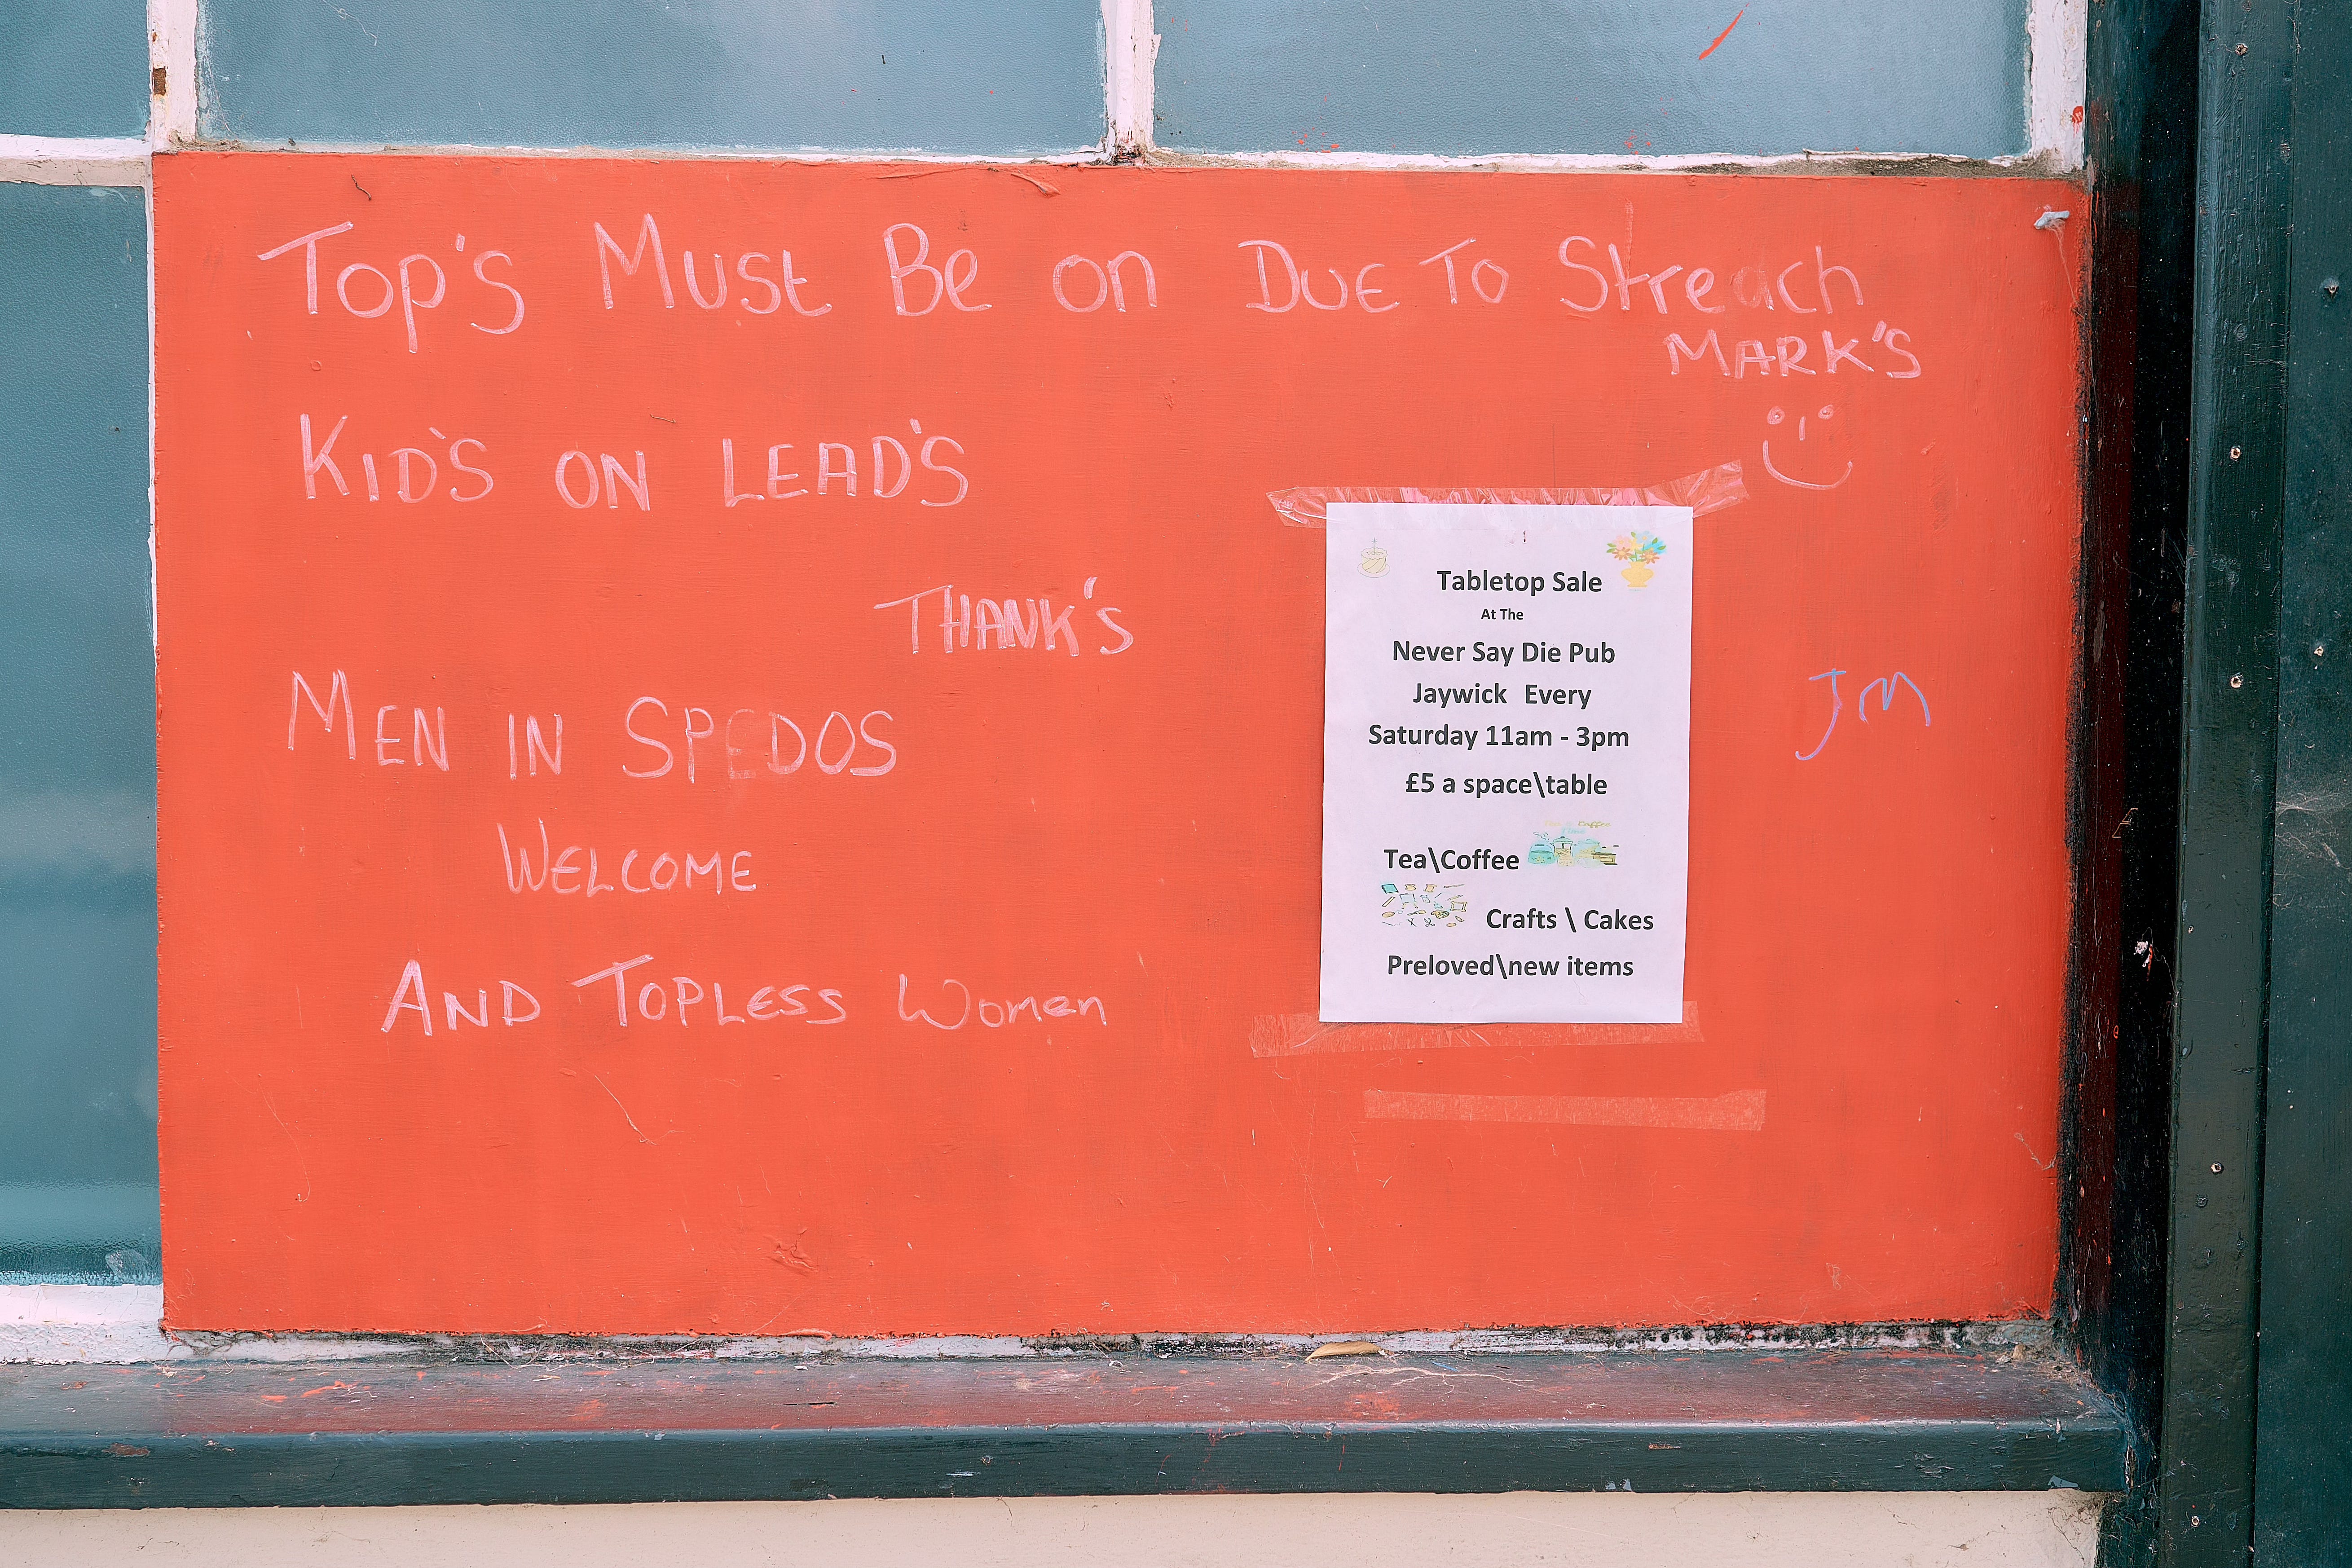 Top's Must Be on Due To Streach
MARK'S
KID'S ON LEAD'S
THANK'S
MEN IN SPEDOS
WELCOME
AND TOPLESS Women
JM
Tabletop Sale
At The
Never Say Die Pub
Jaywick Every
Saturday 11am - 3pm
£5 a space\table
Tea\Coffee
Crafts \ Cakes
Preloved\new items